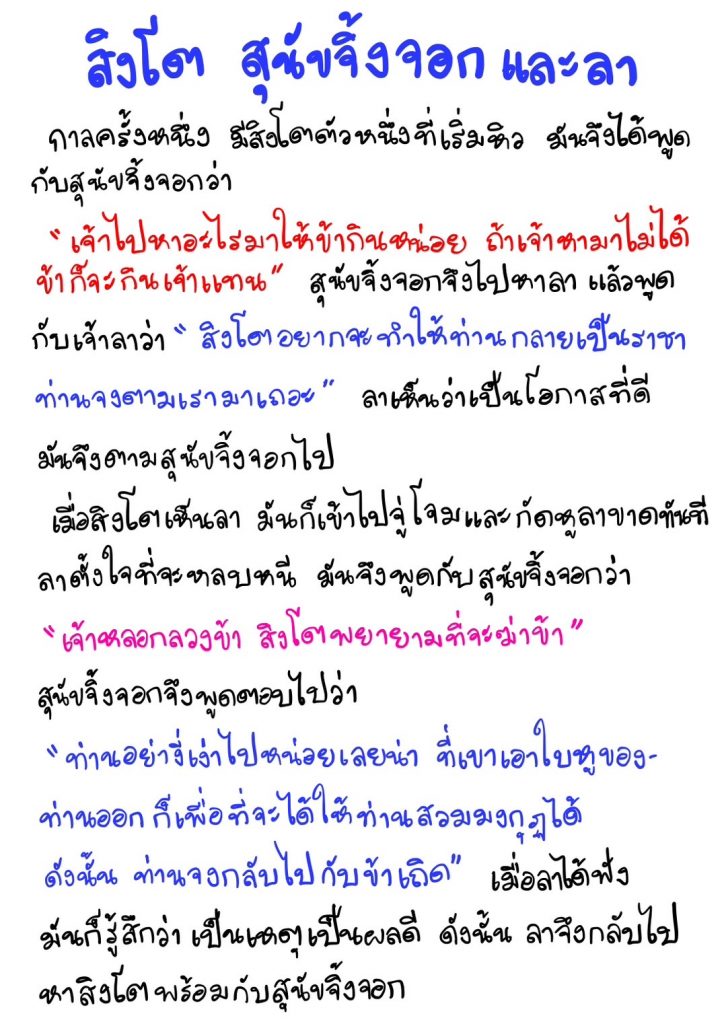 สิงโต สุนัขจิ้งจอก และลา
กาลครั้งหนึ่ง มีสิงโตตัวหนึ่งที่เริ่มหิว มันจึงได้พูด
กับสุนัขจิ้งจอกว่า
"เจ้าไปหาอะไรมาให้ข้ากินหน่อย ถ้าเจ้าหามาไม่ได้
ข้าก็จะกินเจ้าแทน" สุนัขจิ้งจอกจึงไปหาลา แล้วพูด
กับเจ้าลาว่า "สิงโตอยากจะทำให้ท่านกลายเป็นราชา
ท่านจงตามเรามาเถอะ" ลาเห็นว่าเป็นโอกาสที่ดี
มันจึงตามสุนัขจิ้งจอกไป
เมื่อสิงโตเห็นลา มันก็เข้าไปจู่โจมและกัดหูลาขาดทันที
ลาตั้งใจที่จะหลบหนี มันจึงพูดกับสุนัขจิ้งจอกว่า
"เจ้าหลอกลวงข้า สิงโตพยายามที่จะฆ่าข้า"
สุนัขจิ้งจอกจึงพูดตอบไปว่า
"ท่านอย่างี่เง่าไปหน่อยเลยน่า ที่เขาเอาใบหูของ-
ท่านออก ก็เพื่อที่จะได้ให้ท่านสวมมงกุฎได้
ดังนั้น ท่านจงกลับไปกับข้าเถิด" เมื่อลาได้ฟัง
มันก็รู้สึกว่า เป็นเหตุเป็นผลดี ดังนั้น ลาจึงกลับไป
หาสิงโตพร้อมกับสุนัขจิ้งจอก